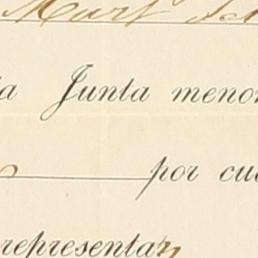 Mart
a Junta menor
por cu
representan